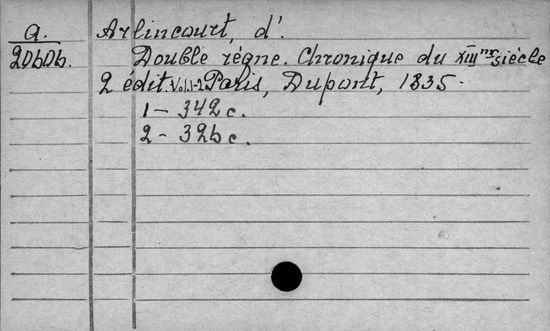 a. Arlincourt, d'.
20606. Double règne. Chronique du XIIIme siècle
2 édit. Vol. 1-2 Paris, Dupont, 1835.
1 - 342 c.
2 - 326 c.